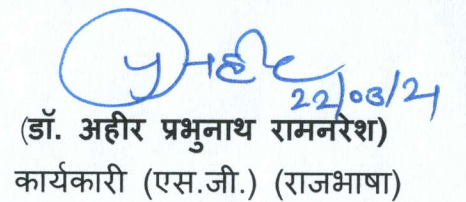 22/03/21
(डॉ. अहीर प्रभुनाथ रामनरेश)
कार्यकारी (एस.जी.) (राजभाषा)